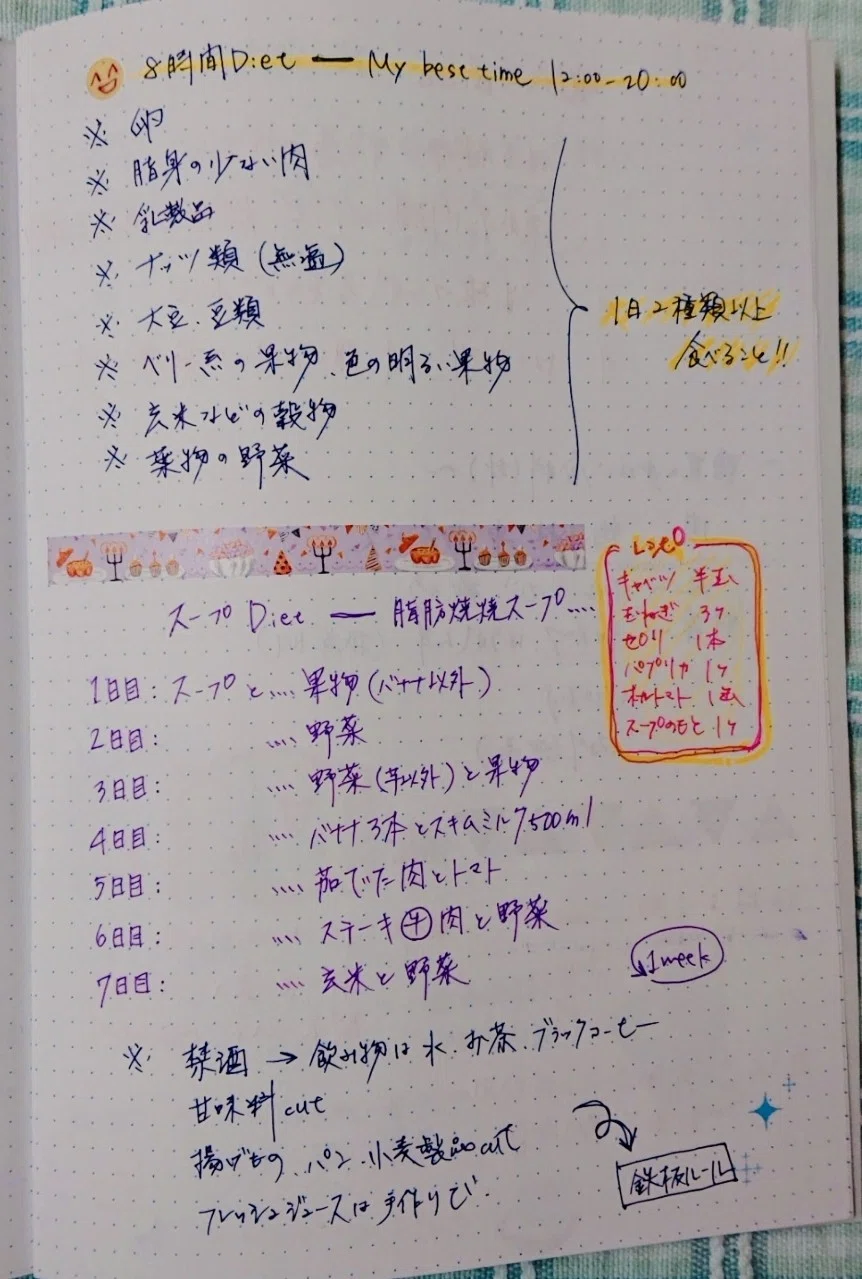 8時間Diet ー My best time 12:00-20:00
※ 卵
※ 脂身の少ない肉
※ 乳製品
※ ナッツ類 (無塩)
※ 大豆、豆類
※ ベリー系の果物、色の明るい果物
※ 玄米などの穀物
※ 葉物の野菜
1日2種類以上
食べること!!
スープDiet ー 脂肪燃焼スープ....
キャベツ 半玉
玉ねぎ 3ケ
セロリ 1本
パプリカ 1ケ
ホールトマト 1缶
スープのもと 1ケ
1日目: スープと.... 果物(バナナ以外)
2日目: .... 野菜
3日目: .... 野菜(芋以外)と果物
4日目: .... バナナ3本とスキムミルク500ml
5日目: .... 茹でた肉とトマト
6日目: .... ステーキ牛肉と野菜
7日目: .... 玄米と野菜
1week
※ 禁酒 → 飲み物は水、お茶、ブラックコーヒー
甘味料cut
揚げもの、パン、小麦製品cut
フレッシュジュースは手作りで
鉄板ルール